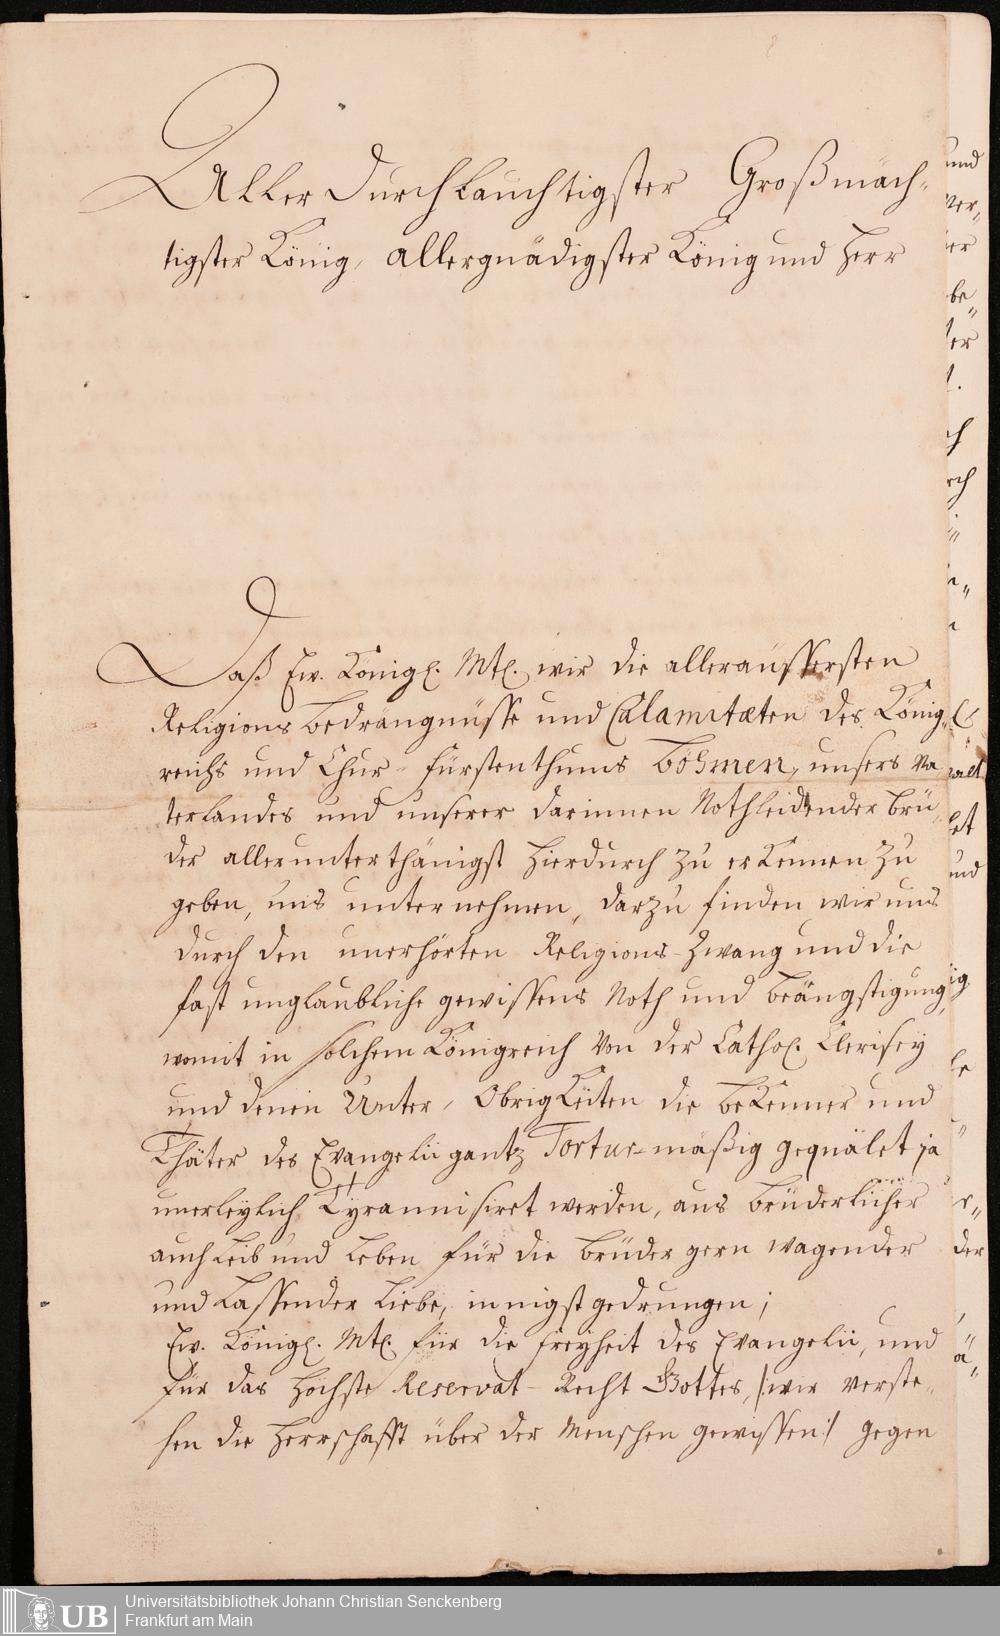 Aller Durchlauchtigster Großmäch-
tigster König, allergnädigster König und Herr
Daß Ew. Königl. Mtl. wir die alleräussersten
Religions Bedrängnüsse und Calamitæten des König-
reichs und Chur-Fürstenthums Böhmen, unsers Va-
terlandes und unserer darinnen Nothleidtender Brü-
der allerunterthänigst hierdurch zu erkennen zu
geben, uns unternehmen, darzu finden wir uns
durch den unerhörten Religions-Zwang und die
fast unglaubliche gewissens Noth und Beängstigung,
womit in solchem Königreich von der Cathol. Clerisey
und denen Unter-Obrigkeiten die Bekenner und
Thäter des Evangelii gantz Tortur-mäßig gequälet ja
unerleylich Tyrannisiret werden, aus Brüderlicher
auch Leib und Leben für die Brüder gern wagender
und Lassender Liebe, innigst gedrungen;
Ew. Königl. Mtl. für die Freyheit des Evangelii, und
für das Höchste Reservat-Recht Gottes, /:wir verste-
hen die Herrschafft über der Menschen gewissen:/ gegen
und
ver-
er
be-
ter
rch
let
und
ig
der
UB
Universitätsbibliothek Johann Christian Senckenberg
Frankfurt am Main